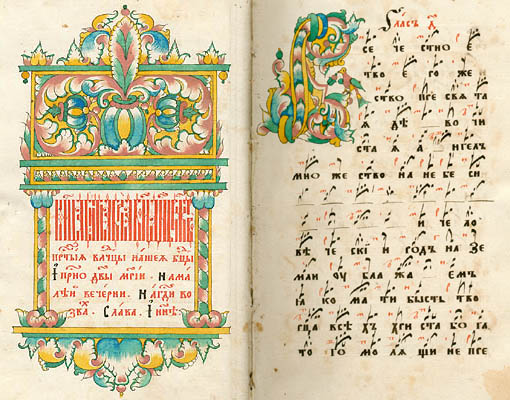 прⷭ҇тыѧ влⷣчцы нашеѧ бцⷣы
и҆ прⷭ҇но дв҃ы мр҃іи . на ма
лѣй вечерни . на гдⷭ҇и во
зва . Слава . І҆ нн҃ѣ :
Гласъ д҃
се че стно е
тво е го же
ство пре свѧ та
ѧ дѣ во чи
ста ѧ а нгелъ
мно же ство на не бе си
и че ло
вѣ че скі и родъ на зе
мли оу бла жа емъ
ꙗ ко ма ти бысть тво
рца всѣ хъ хри ста бо га
то го мо лѧ щи не пре